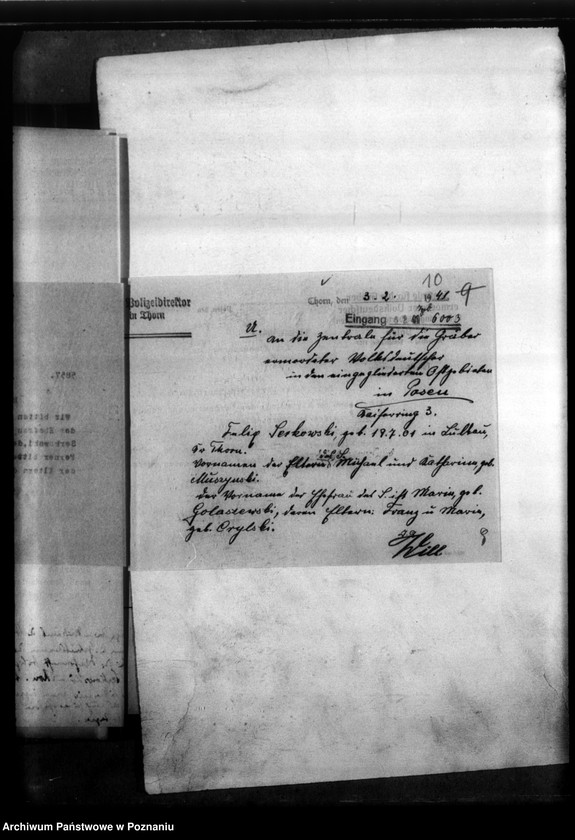 10
Polizeidirektor
in Thorn
Thorn, den 3. 2. 1941
Eingang 6003
U.
An die Zentrale für die Gräber
ermordeter Volksdeutscher
in den eingegliederten Ostgebieten
in Posen
Kaiserring 3.
Felix Serkowski, geb. 18.7.01 in Lulkau,
Kr Thorn.
Vornamen der Eltern Michael und Katharina geb.
Muszynski.
Der Vorname der Ehefrau des S. ist Marie, geb.
Golasiewski, deren Eltern: Franz u Marie,
geb. Orylski.
Will
Archiwum Państwowe w Poznaniu